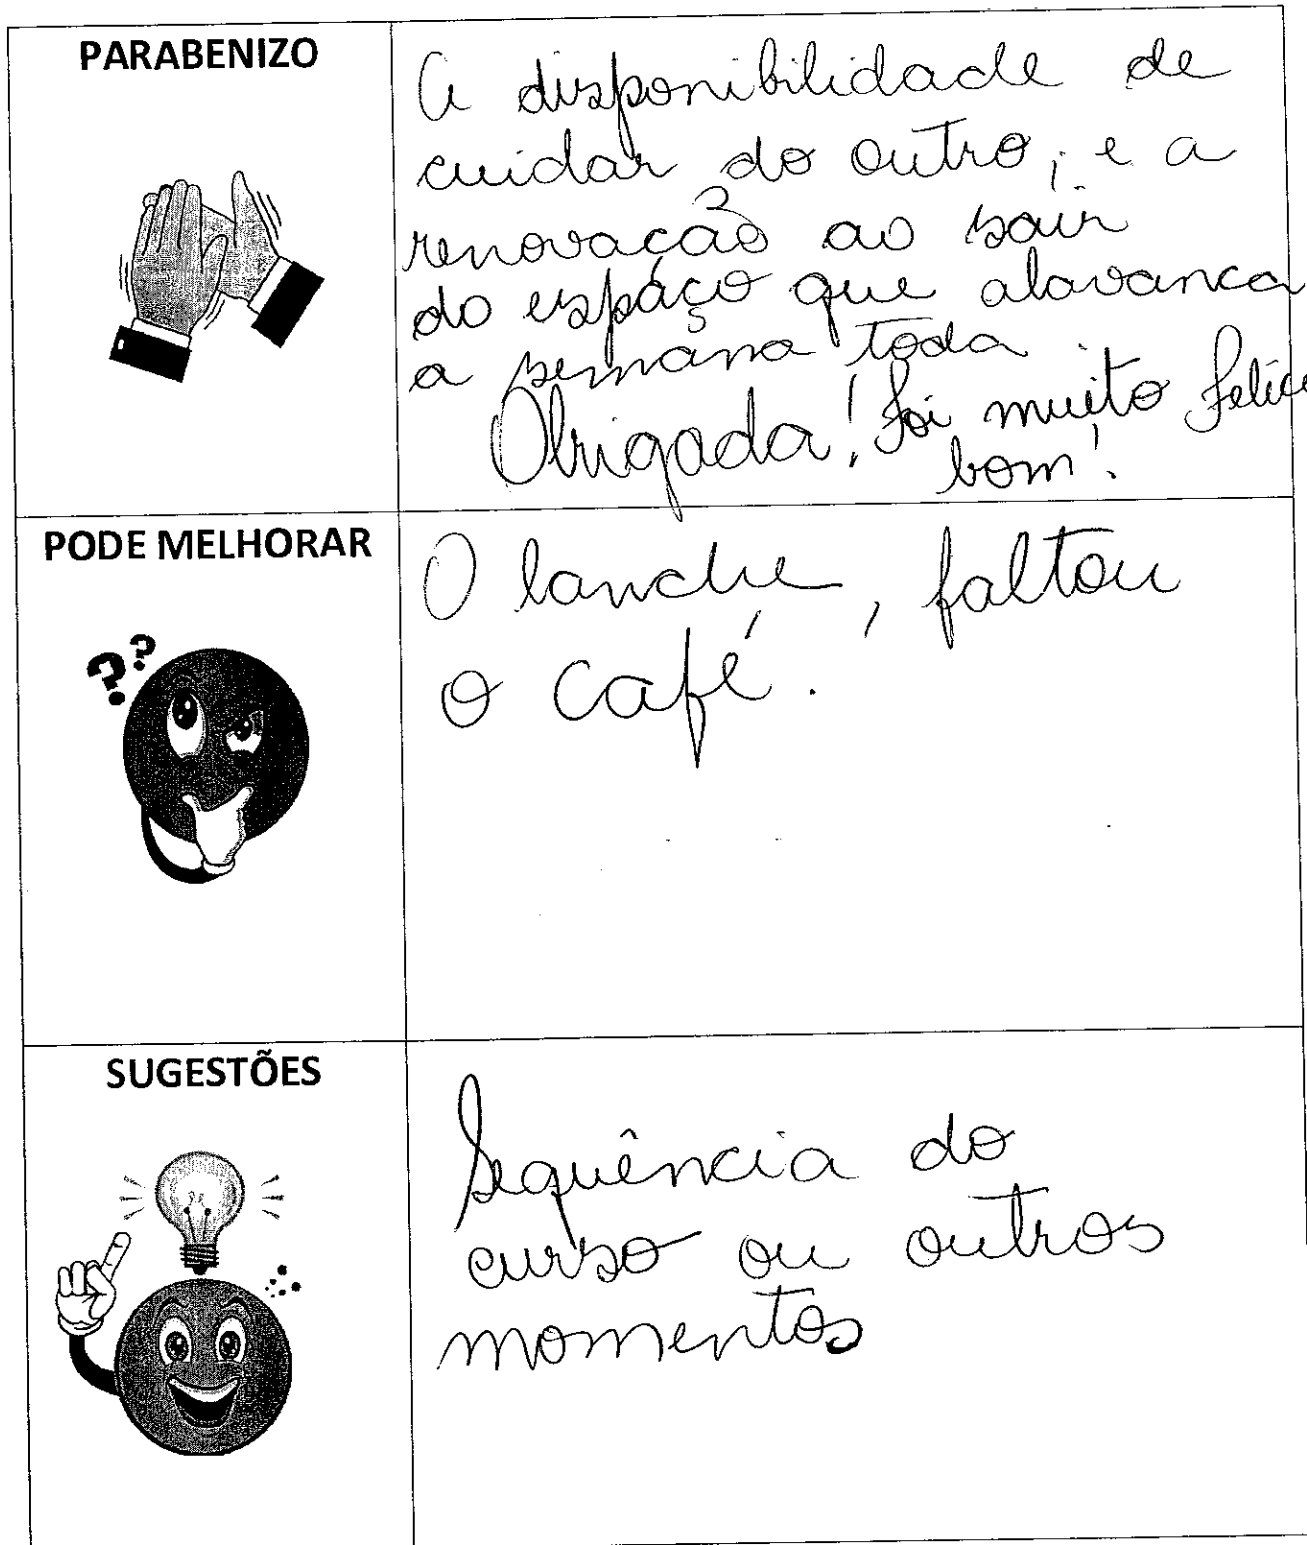 PARABENIZO
A disponibilidade de
cuidar do outro, e a
renovação ao sair
do espaço que alavanca
a semana toda.
Obrigada! foi muito
bom!
PODE MELHORAR
O lanche, faltou
o café.
SUGESTÕES
Sequência do
curso ou outros
momentos